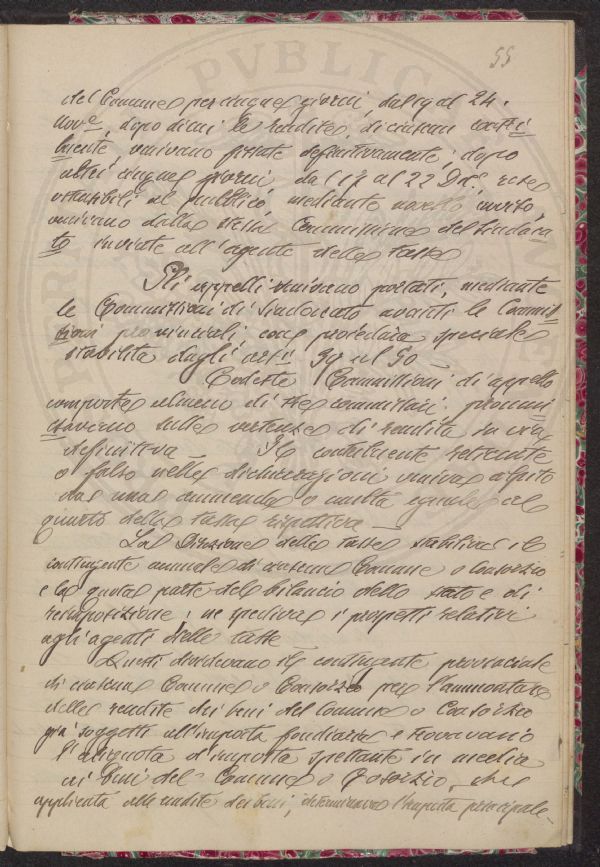 55
del Comune per cinque giorni, dal 19 al 24.
nove, dopo di cui le rendite di ciascun contri
buente venivano fissate definitivamente; dopo
altri cinque giorni dal 17 al 22 Dice. rese
ostensibili al pubblico mediante nuovo avviso,
venivano dalla stessa Commissione del Sindaca
to inviate all'agente delle tasse
Gli appelli venivano portati, mediante
le Commissioni di Sindacato avanti le Commis
sioni provinciali con procedura speciale
stabilita dagli arti. 39 al 50 —
Codeste Commissioni di appello
composte almeno di tre commissari pronun
ciavano sulle vertenze di rendita in via
definitiva — Il contribuente reticente
o falso nelle dichiarazioni veniva colpito
da una ammenda o multa eguale al
quarto della tassa rispettiva —
La Direzione delle tasse stabiliva il
contingente annuale di ciascun Comune o Consorzio
e la quota parte del bilancio dello stato e di
reimposizione; ne spediva i prospetti relativi
agli agenti delle tasse
Questi dividevano il contingente provinciale
di ciascun Comune o Consorzio per l'ammontare
delle rendite dei beni del Comune o Consorzio
già soggetti all'imposta fondiaria e trovavano
l'aliquota d'imposta spettante in media
ai beni del Comune o Consorzio, che
applicata alle rendite dei beni, determinava l'imposta principale —
PVBLICA